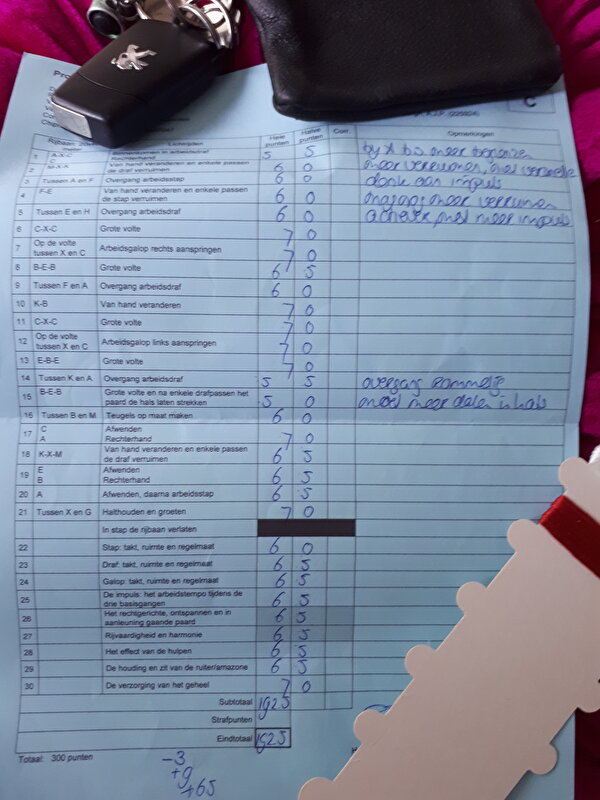 Pro
C
Hele punten Halve punten Corr. Opmerkingen
1 A-X-C Binnenkomen in arbeidsdraf Rechterhand 5 5
2 M-X-K Van hand veranderen en enkele passen de draf verruimen 6 0
3 Tussen A en F Overgang arbeidsstap 6 0
4 F-E Van hand veranderen en enkele passen de stap verruimen 6 0
5 Tussen E en H Overgang arbeidsdraf 6 0
6 C-X-C Grote volte 7 0
7 Op de volte tussen X en C Arbeidsgalop rechts aanspringen 7 0
8 B-E-B Grote volte 6 5
9 Tussen F en A Overgang arbeidsdraf 6 0
10 K-B Van hand veranderen 7 0
11 C-X-C Grote volte 7 0
12 Op de volte tussen X en C Arbeidsgalop links aanspringen 7 0
13 E-B-E Grote volte 7 0
14 Tussen K en A Overgang arbeidsdraf 5 5 overgang rommelig
15 B-E-B Grote volte en na enkele drafpassen het paard de hals laten strekken 5 0 moet meer dalen in hals
16 Tussen B en M Teugels op maat maken 6 0
17 C A Afwenden Rechterhand 7 0
18 K-X-M Van hand veranderen en enkele passen de draf verruimen 6 5
19 E B Afwenden Rechterhand 6 5
20 A Afwenden, daarna arbeidsstap 6 5
21 Tussen X en G Halthouden en groeten 7 0
In stap de rijbaan verlaten
22 Stap: takt, ruimte en regelmaat 6 0
23 Draf: takt, ruimte en regelmaat 6 5
24 Galop: takt, ruimte en regelmaat 6 5
25 De impuls: het arbeidstempo tijdens de drie basisgangen 6 5
26 Het rechtgerichte, ontspannen en in aanleuning gaande paard 6 5
27 Rijvaardigheid en harmonie 6 5
28 Het effect van de hulpen 6 5
29 De houding en zit van de ruiter/amazone 6 5
30 De verzorging van het geheel 7 0
Subtotaal 1925
Strafpunten
Eindtotaal 1925
Totaal: 300 punten
-3
+9
+65